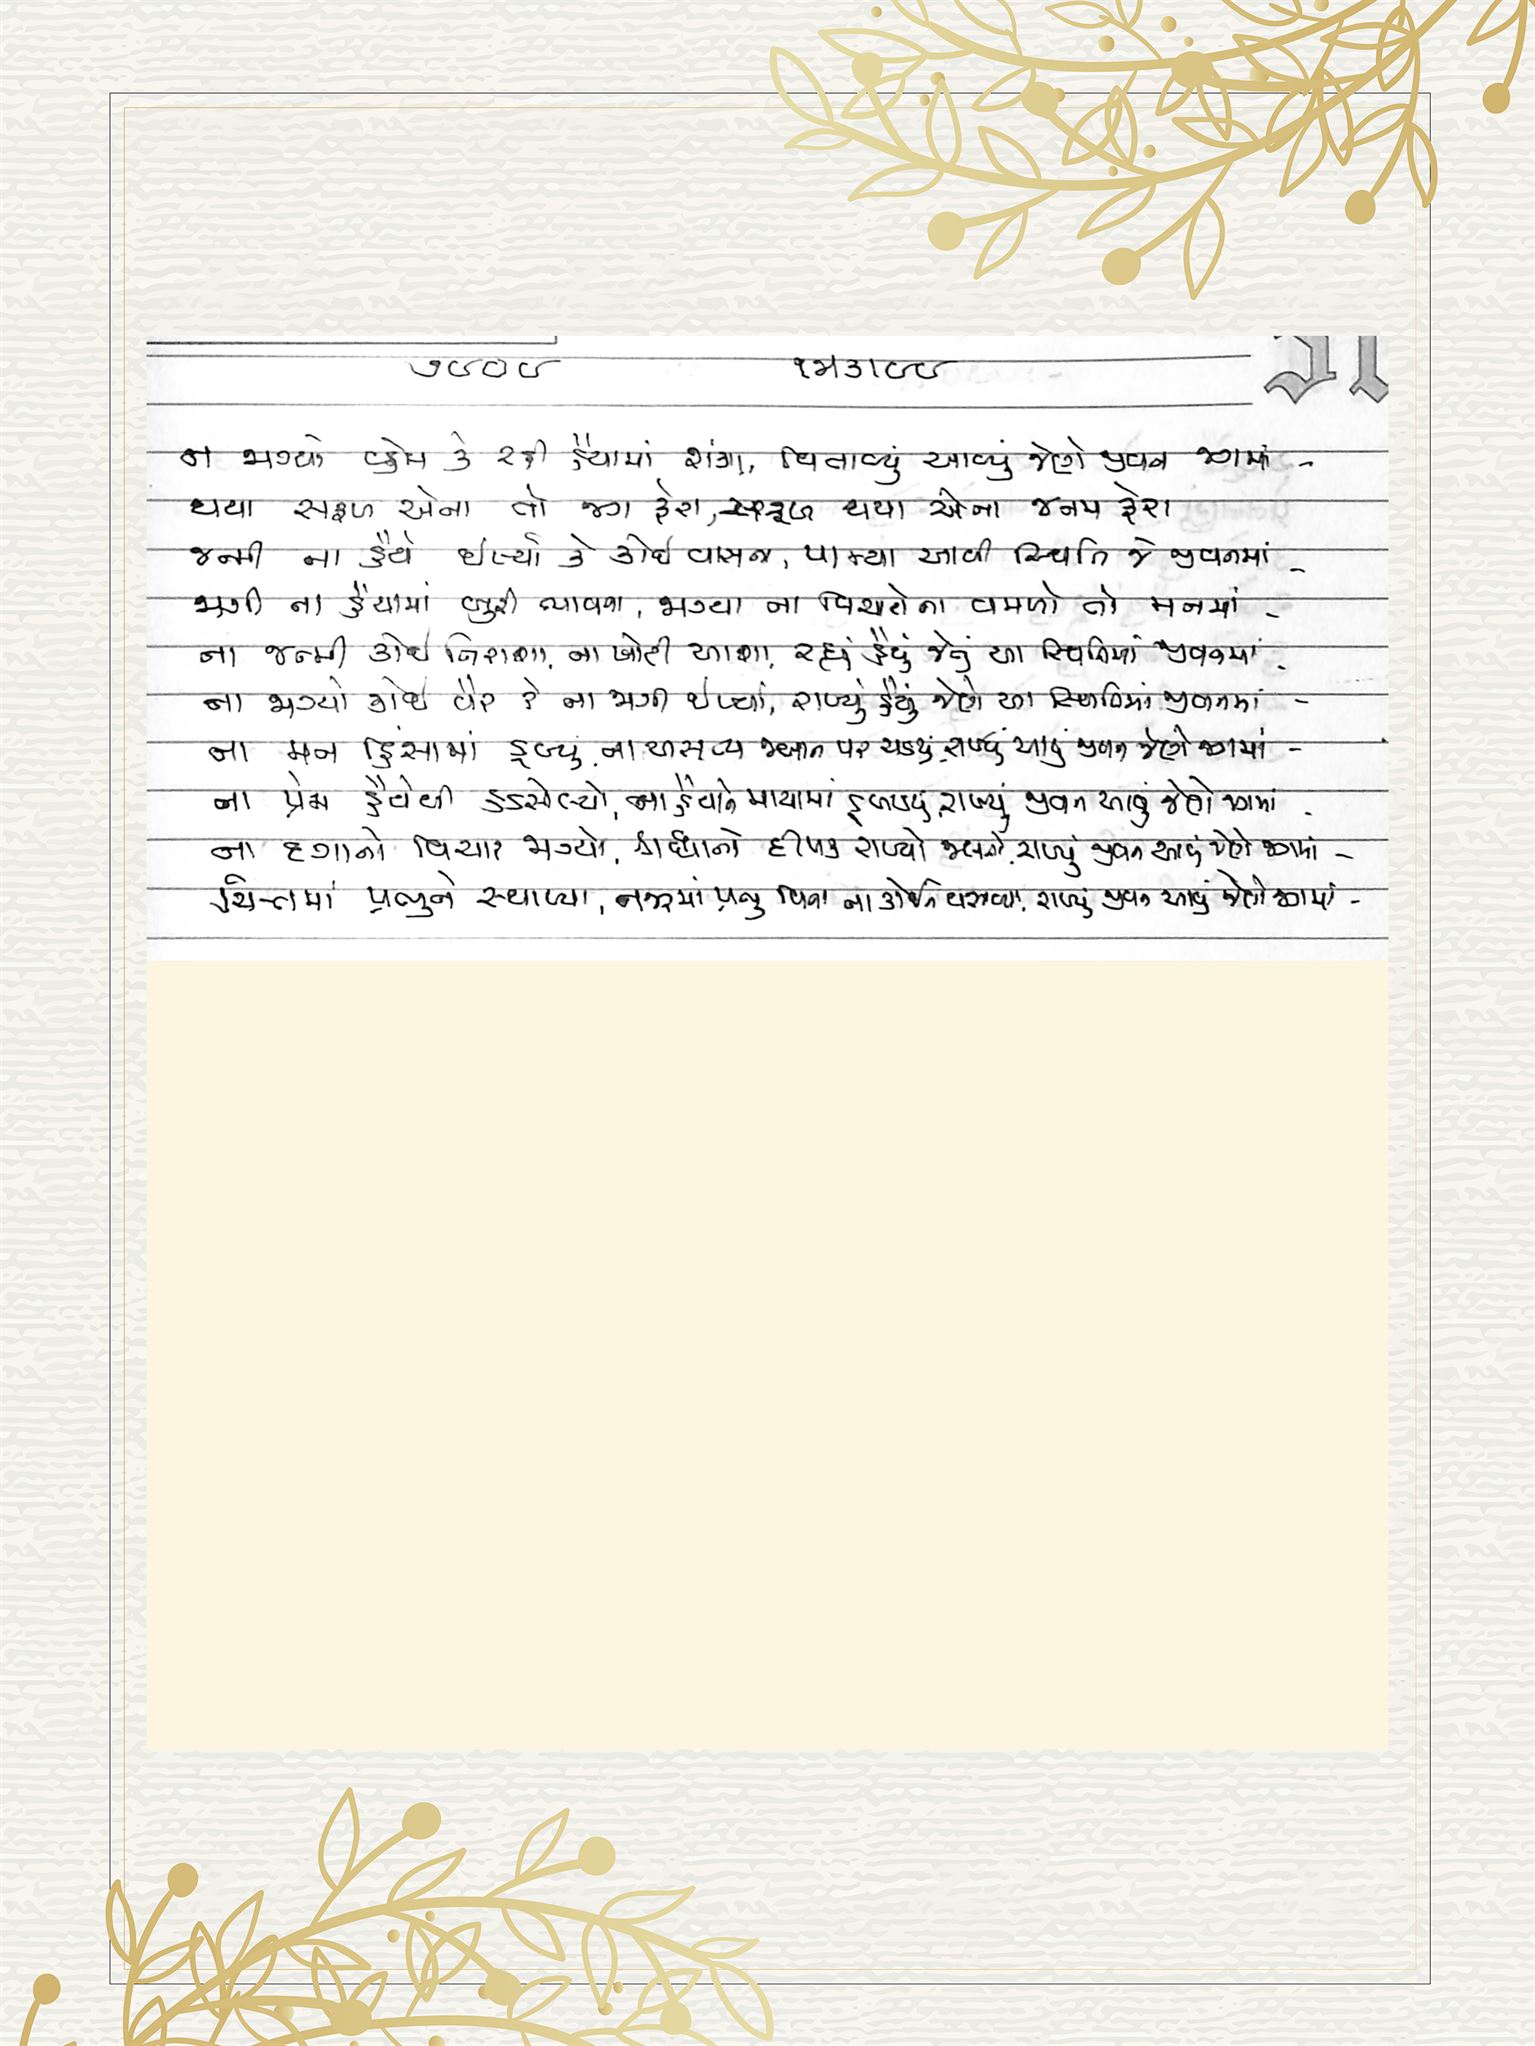 ૭૯૦૯ ૧મે૩।૯૯
ન જાગ્યો ક્રોધ કે રહી હૈયામાં શંકા, વિતાવ્યું આવ્યું જેણે જીવન જગમાં -
થયા સફળ એના તો જગ ફેરા, સફળ થયા એના જનમ ફેરા
જન્મી ના હૈયે ઈર્ષ્યા કે કોઈ વાસના, પામ્યા આવી સ્થિતિ જે જીવનમાં -
જાગી ના હૈયામાં બુરી ભાવના, જાગ્યા ના વિચારોના વમળો તો મનમાં -
ના જન્મી કોઈ નિરાશા, ના ખોટી આશા, રહ્યું હૈયું જેનું આ સ્થિતિમાં જીવનમાં -
ના જાગ્યો કોઈ વેર રે ના જાગી ઈર્ષ્યા, રાખ્યું હૈયું જેણે આ સ્થિતિમાં જીવનમાં -
ના મન હિંસામાં ડૂબ્યું, ના અસત્ય જબાન પર ચડયું, રાખ્યું આવું જીવન જેણે જગમાં -
ના પ્રેમ હૈયેથી હડસેલ્યો, ના હૈયાને માયામાં ડૂબાડયું, રાખ્યું જીવન આવું જેણે જગમાં -
ના દગાનો વિચાર જાગ્યો, શ્રદ્ધાનો દીપક રાખ્યો જલતો, રાખ્યું જીવન આવું જેણે જગમાં -
ચિત્તમાં પ્રભુને સ્થાપ્યા, નજરમાં પ્રભુ વિના ના કોઈને વસાવ્યા, રાખ્યું જીવન આવું જેણે જગમાં -